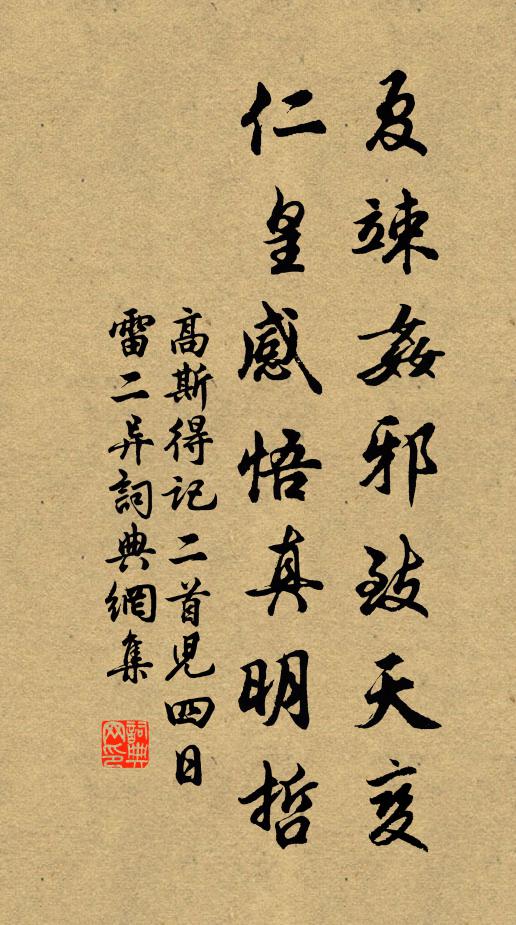 夏竦姦邪致天变
仁皇感悟真明哲
高斯得记二首児四日
雷二异詞典網集
詞典
网印